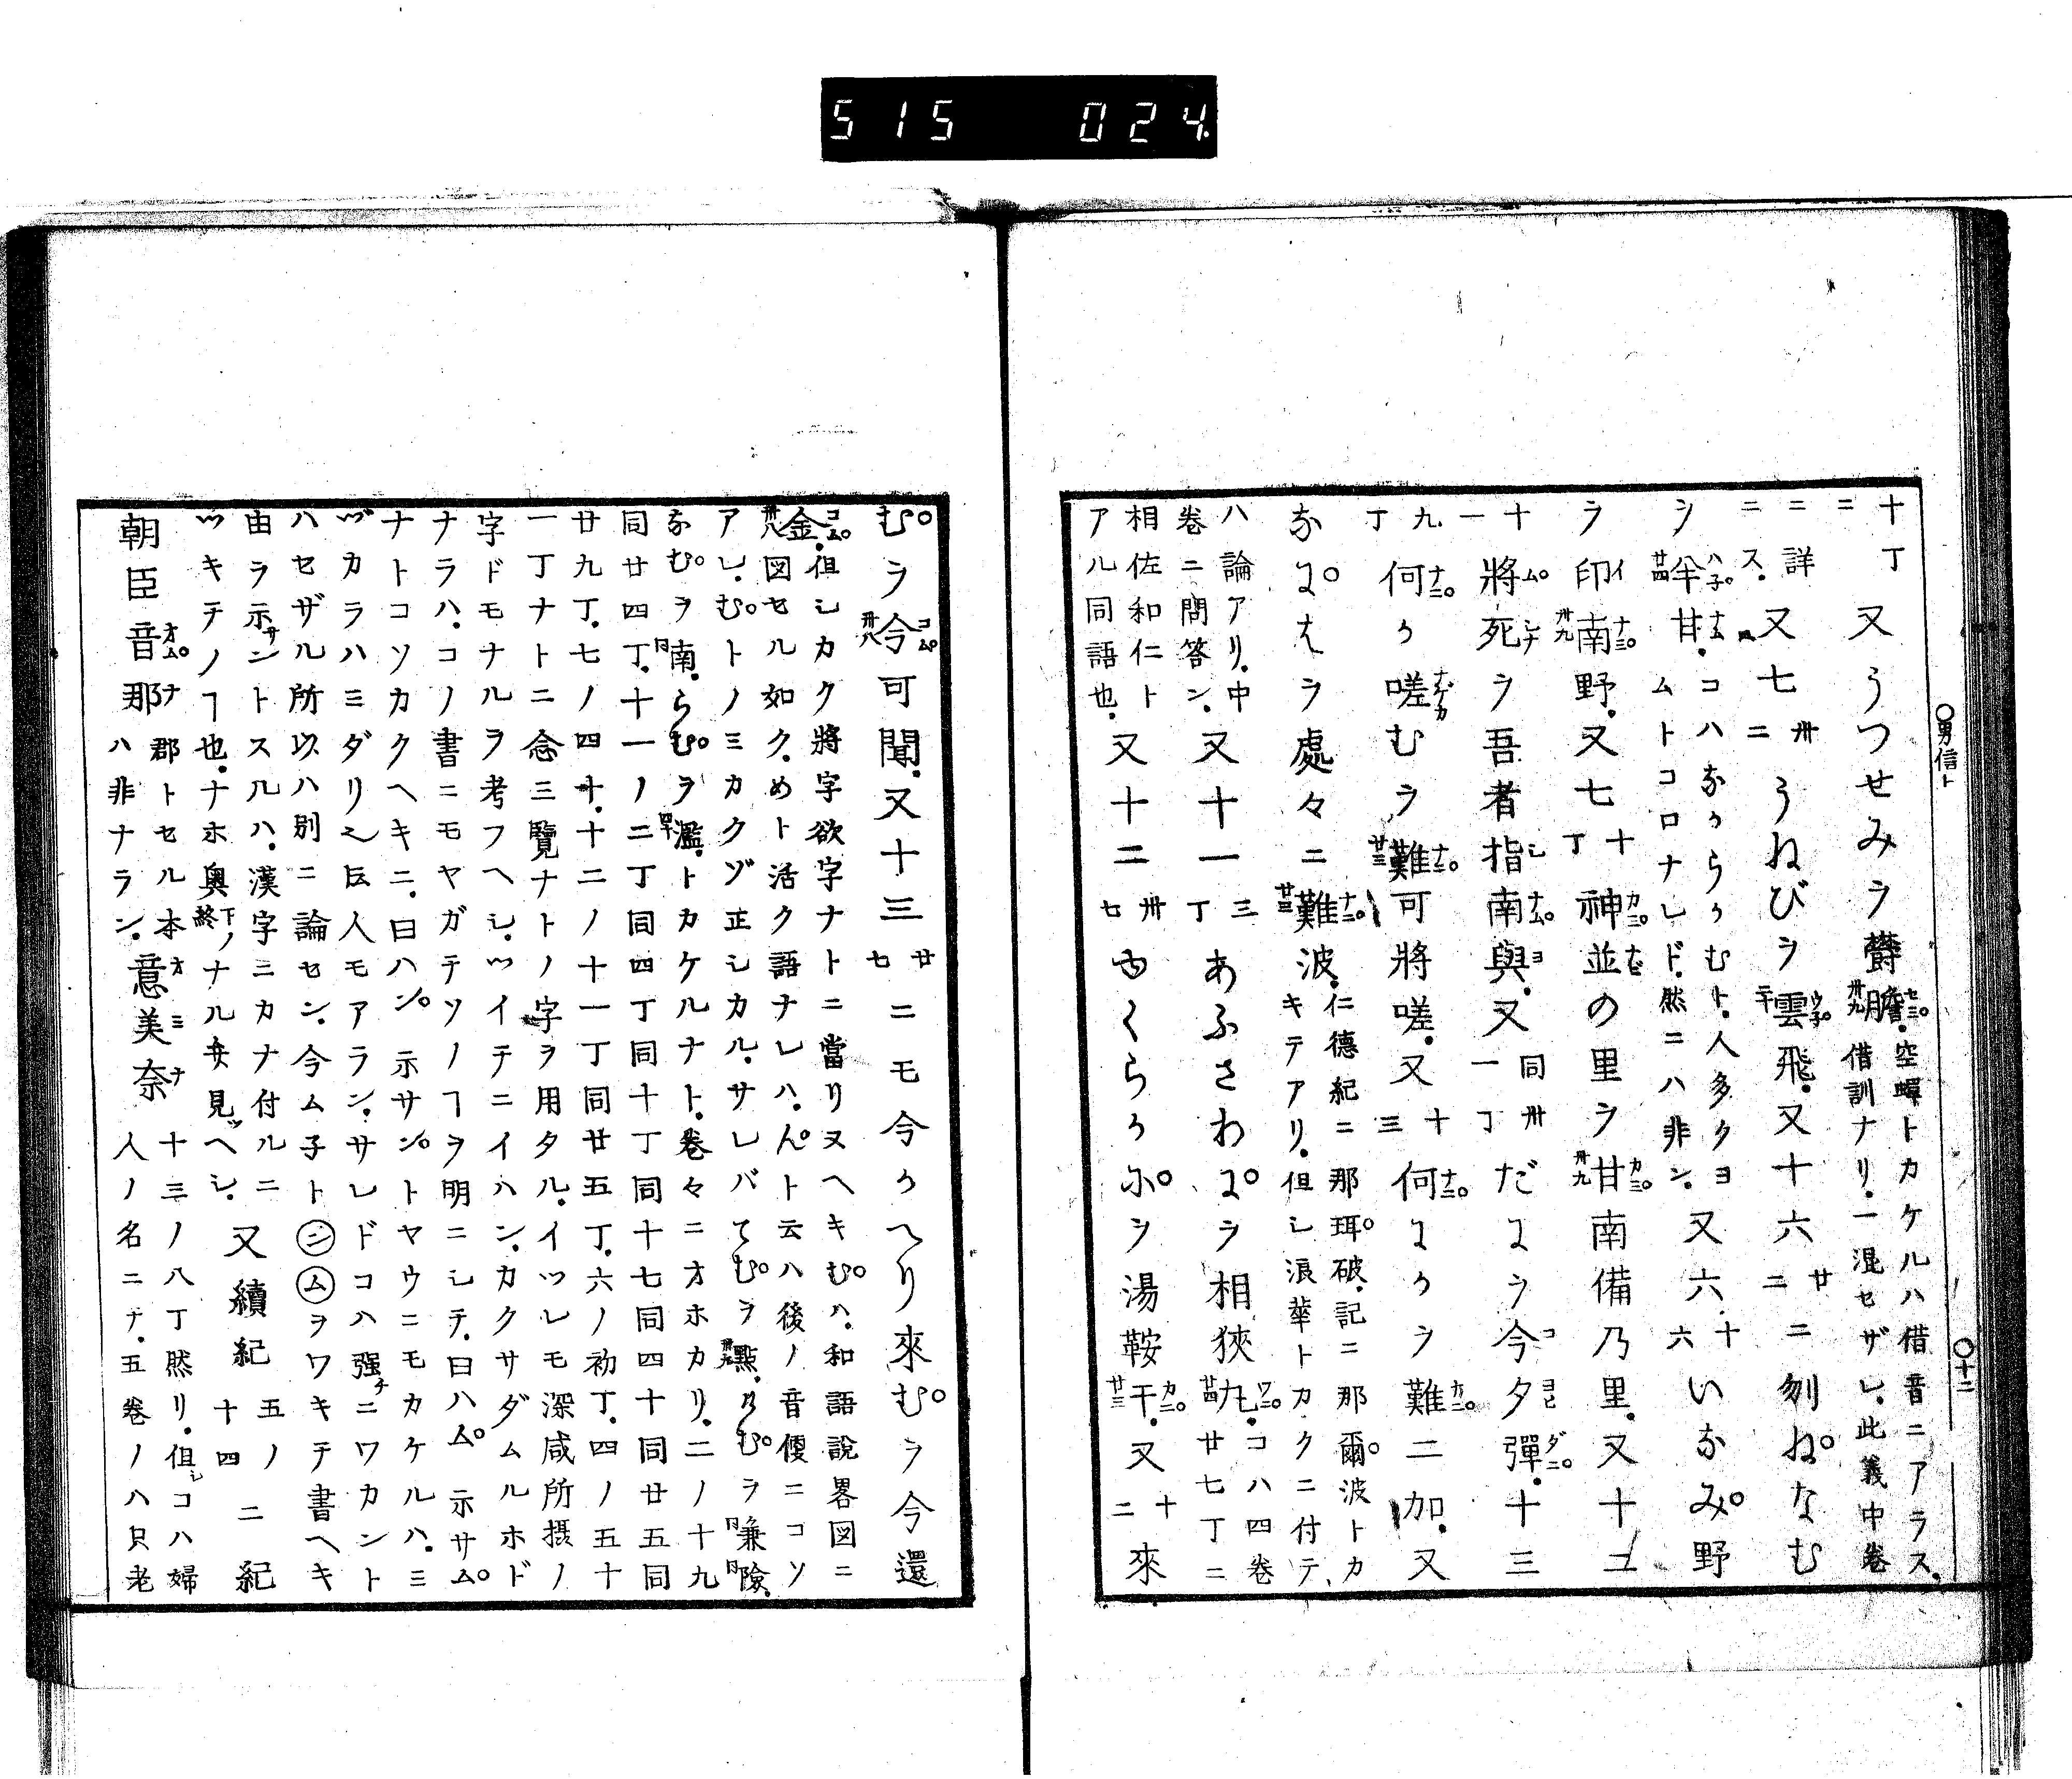 515 024
○男信ト
○十二
十丁ニ 又うつせみラ欝膽。空蟬トカケルハ借音ニアラス。
借訓ナリ。一混セザレ。此義中巻
ニ詳ニス。又七 卅二 うねびヲ雲飛。又十六 廿二 ニ刎ねなむ
シ 甘。コハなからむト。人多クヨ
ムトコロナレド。然ニハ非ン。又六 十六 いなみ野
ヲ印南野。又七 十丁 神並の里ヲ甘南備乃里。又十一
十一 將死ヲ吾者指南與。又 同卅一丁 だにヲ今夕彈。十三
九丁 何か嗟むヲ難可將嗟。又 十三 何にかヲ難二加。又
なにはヲ處々ニ難波。仁德紀ニ那珥破。記ニ那爾波トカ
キテアリ。但シ浪華トカクニ付テ、
ハ論アリ。中巻ニ問答ン。又十一 三丁 あふさわにヲ相狹丸。コハ四卷
廿七丁ニ
相佐和仁トアル同語也。又十二 卅七 ゆくらかにヲ湯鞍干。又 十二 來
むヲ今可聞。又十三 廿七 ニモ今かへり來むヲ今還
金。但シカク將字欲字ナトニ當リヌヘキむハ。和語說畧図ニ
図セル如ク。めト活ク語ナレハ。んト云ハ後ノ音便ニコソ
アレ。むトノミカクゾ正シカル。サレバてむヲ點。けむヲ兼險。
なむヲ南。らむヲ濫。トカケルナト。巻々ニオホカリ。二ノ十九
同廿四丁。十一ノ二丁同四丁同十丁同十七同四十同廿五同
廿九丁。七ノ四十。十二ノ十一丁同廿五丁。六ノ初丁。四ノ五十
一丁ナトニ念三覽ナトノ字ヲ用タル。イツレモ深咸所摂ノ
字ドモナルヲ考フヘシ。ツイテニイハン。カクサダムルホド
ナラハ。コノ書ニモヤガテソノヿヲ明ニシテ。曰ハム。示サム。
ナトコソカクヘキニ。曰ハン。示サン。トヤウニモカケルハ。ミ
ヅカラハミダリ也ト人モアラン。サレドコハ强テニワカント
ハセザル所以ハ別ニ論セン。今ム子トンムヲワキテ書ヘキ
由ヲ示サントス几ハ。漢字ニカナ付ルニ
ツキテノヿ也。ナホ奧 下ノ終 ナル 見ツヘシ。又續紀 五ノ十四 二紀
朝臣音那 郡トセル本ハ非ナラン。意美奈 十三ノ八丁然リ。但シコハ婦
人ノ名ニテ。五卷ノハ只老